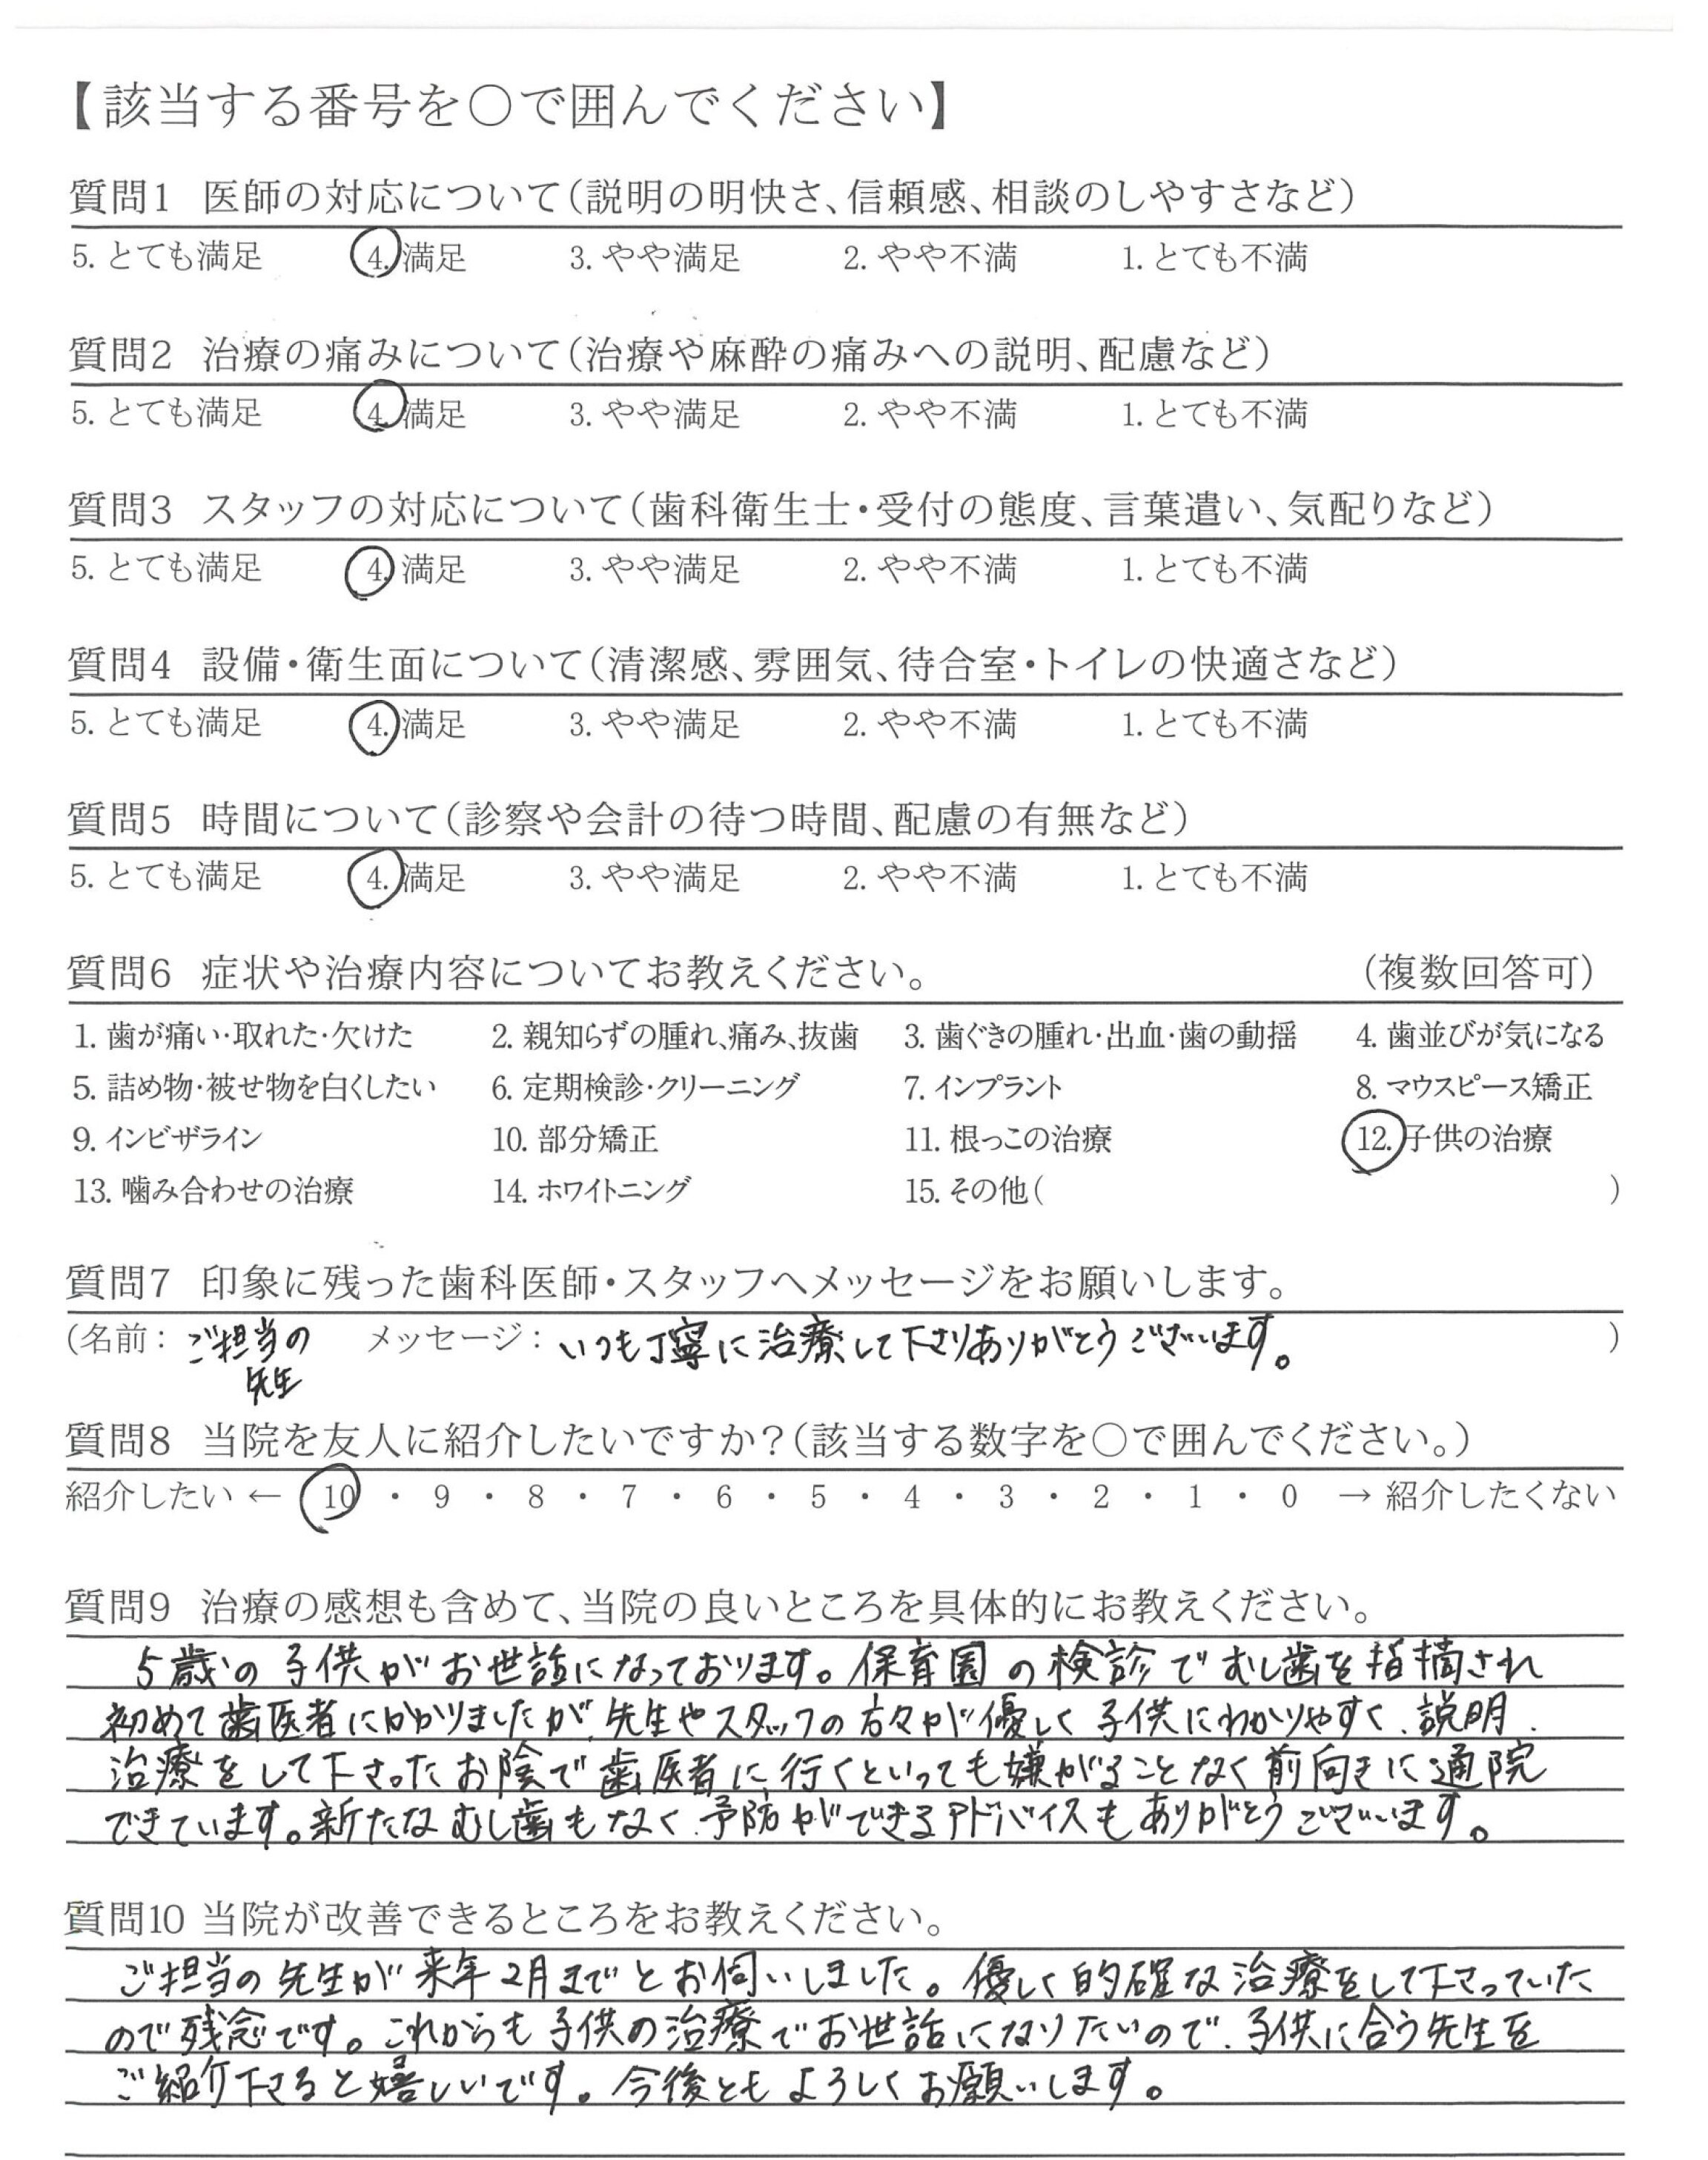 【該当する番号を○で囲んでください】
質問1 医師の対応について(説明の明快さ、信頼感、相談のしやすさなど)
5. とても満足 4. 満足 3. やや満足 2. やや不満 1. とても不満
質問2 治療の痛みについて(治療や麻酔の痛みへの説明、配慮など)
5. とても満足 4. 満足 3. やや満足 2. やや不満 1. とても不満
質問3 スタッフの対応について(歯科衛生士・受付の態度、言葉遣い、気配りなど)
5. とても満足 4. 満足 3. やや満足 2. やや不満 1. とても不満
質問4 設備・衛生面について(清潔感、雰囲気、待合室・トイレの快適さなど)
5. とても満足 4. 満足 3. やや満足 2. やや不満 1. とても不満
質問5 時間について(診察や会計の待つ時間、配慮の有無など)
5. とても満足 4. 満足 3. やや満足 2. やや不満 1. とても不満
質問6 症状や治療内容についてお教えください。 (複数回答可)
1. 歯が痛い・取れた・欠けた 2. 親知らずの腫れ、痛み、抜歯 3. 歯ぐきの腫れ・出血・歯の動揺 4. 歯並びが気になる
5. 詰め物・被せ物を白くしたい 6. 定期検診・クリーニング 7. インプラント 8. マウスピース矯正
9. インビザライン 10. 部分矯正 11. 根っこの治療 12. 子供の治療
13. 噛み合わせの治療 14. ホワイトニング 15. その他( )
質問7 印象に残った歯科医師・スタッフへメッセージをお願いします。
(名前: ご担当の メッセージ: いつも丁寧に治療して下さりありがとうございます。 )
先生
質問8 当院を友人に紹介したいですか?(該当する数字を○で囲んでください。)
紹介したい ← 10 ・ 9 ・ 8 ・ 7 ・ 6 ・ 5 ・ 4 ・ 3 ・ 2 ・ 1 ・ 0 → 紹介したくない
質問9 治療の感想も含めて、当院の良いところを具体的にお教えください。
5歳の子供がお世話になっております。保育園の検診でむし歯を指摘され
初めて歯医者にかかりましたが、先生やスタッフの方々が優しく子供にわかりやすく、説明、
治療をして下さったお陰で歯医者に行くといっても嫌がることなく前向きに通院
できています。新たなむし歯もなく、予防ができるアドバイスもありがとうございます。
質問10 当院が改善できるところをお教えください。
ご担当の先生が来年2月までとお伺いしました。優しく的確な治療をして下さっていた
ので残念です。これからも子供の治療でお世話になりたいので、子供に合う先生を
ご紹介下さると嬉しいです。今後ともよろしくお願いします。